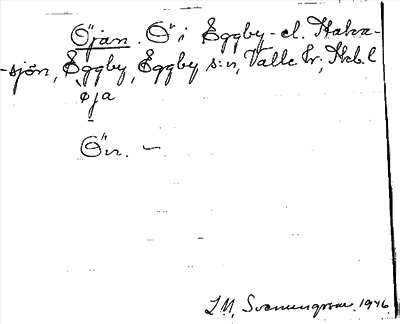 Öjan. Ö i Eggby- el. Haka-
-sjön, Eggby, Eggby s:n, Valle hr; Skb. l
øja
Ön. —
L.M. Svenungsson. 1946.